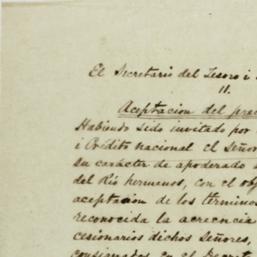 El Secretario del Tesoro i
11.
Aceptacion del
Habiendo sido invitado por
i Crédito nacional el Señor
su carácter de apoderado
del Rio hermanos, con el
aceptacion de los términos
reconocida la acreencia
cesionarios dichos Señores,
consignados en el